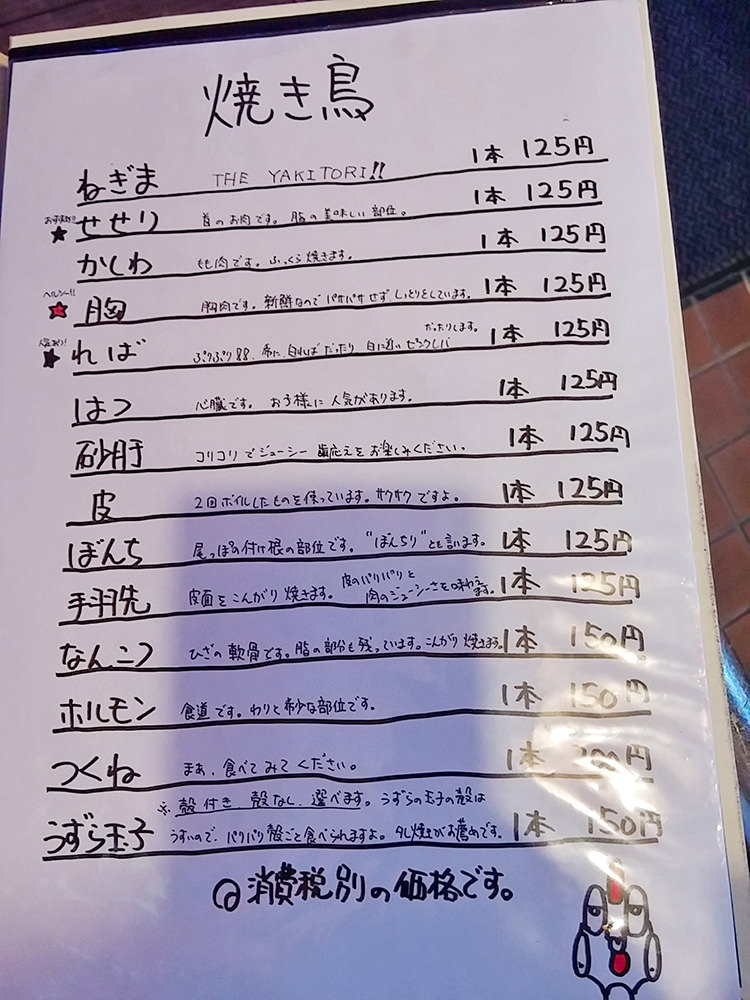 焼き鳥
ねぎま THE YAKITORI!! 1本 125円
おすすめ!! ★ せせり 首のお肉です。脂の美味しい部位。 1本 125円
かしわ もも肉です。ふっくら焼きます。 1本 125円
ヘルシー!! ★ 胸 胸肉です。新鮮なのでパサパサせずしっとりとしています。 1本 125円
だったりします。
人気あり! ★ ればー ぷりぷり!! 希に、白ればだったり 白に近いピンクレバ 1本 125円
はつ 心臓です。お子様に人気があります。 1本 125円
砂肝 コリコリでジューシー 歯応えをお楽しみください。 1本 125円
皮 2回ボイルしたものを使っています。サクサクですよ。 1本 125円
ぼんち 尾っぽの付け根の部位です。"ぼんちり"とも言います。 1本 125円
手羽先 皮面をこんがり焼きます。皮のパリパリと 1本 125円
肉のジューシーさを味わえます。
なんこつ ひざの軟骨です。脂の部分も残っています。こんがり焼きます。 1本 150円
ホルモン 食道です。わりと希少な部位です。 1本 150円
つくね まぁ、食べてみてください。 1本 200円
※殻付き 殻なし、選べます。うずらの玉子の殻は
うずら玉子 うすいので、パリパリ殻ごと食べられますよ。タレ焼きがお薦めです。 1本 150円
消費税別の価格です。